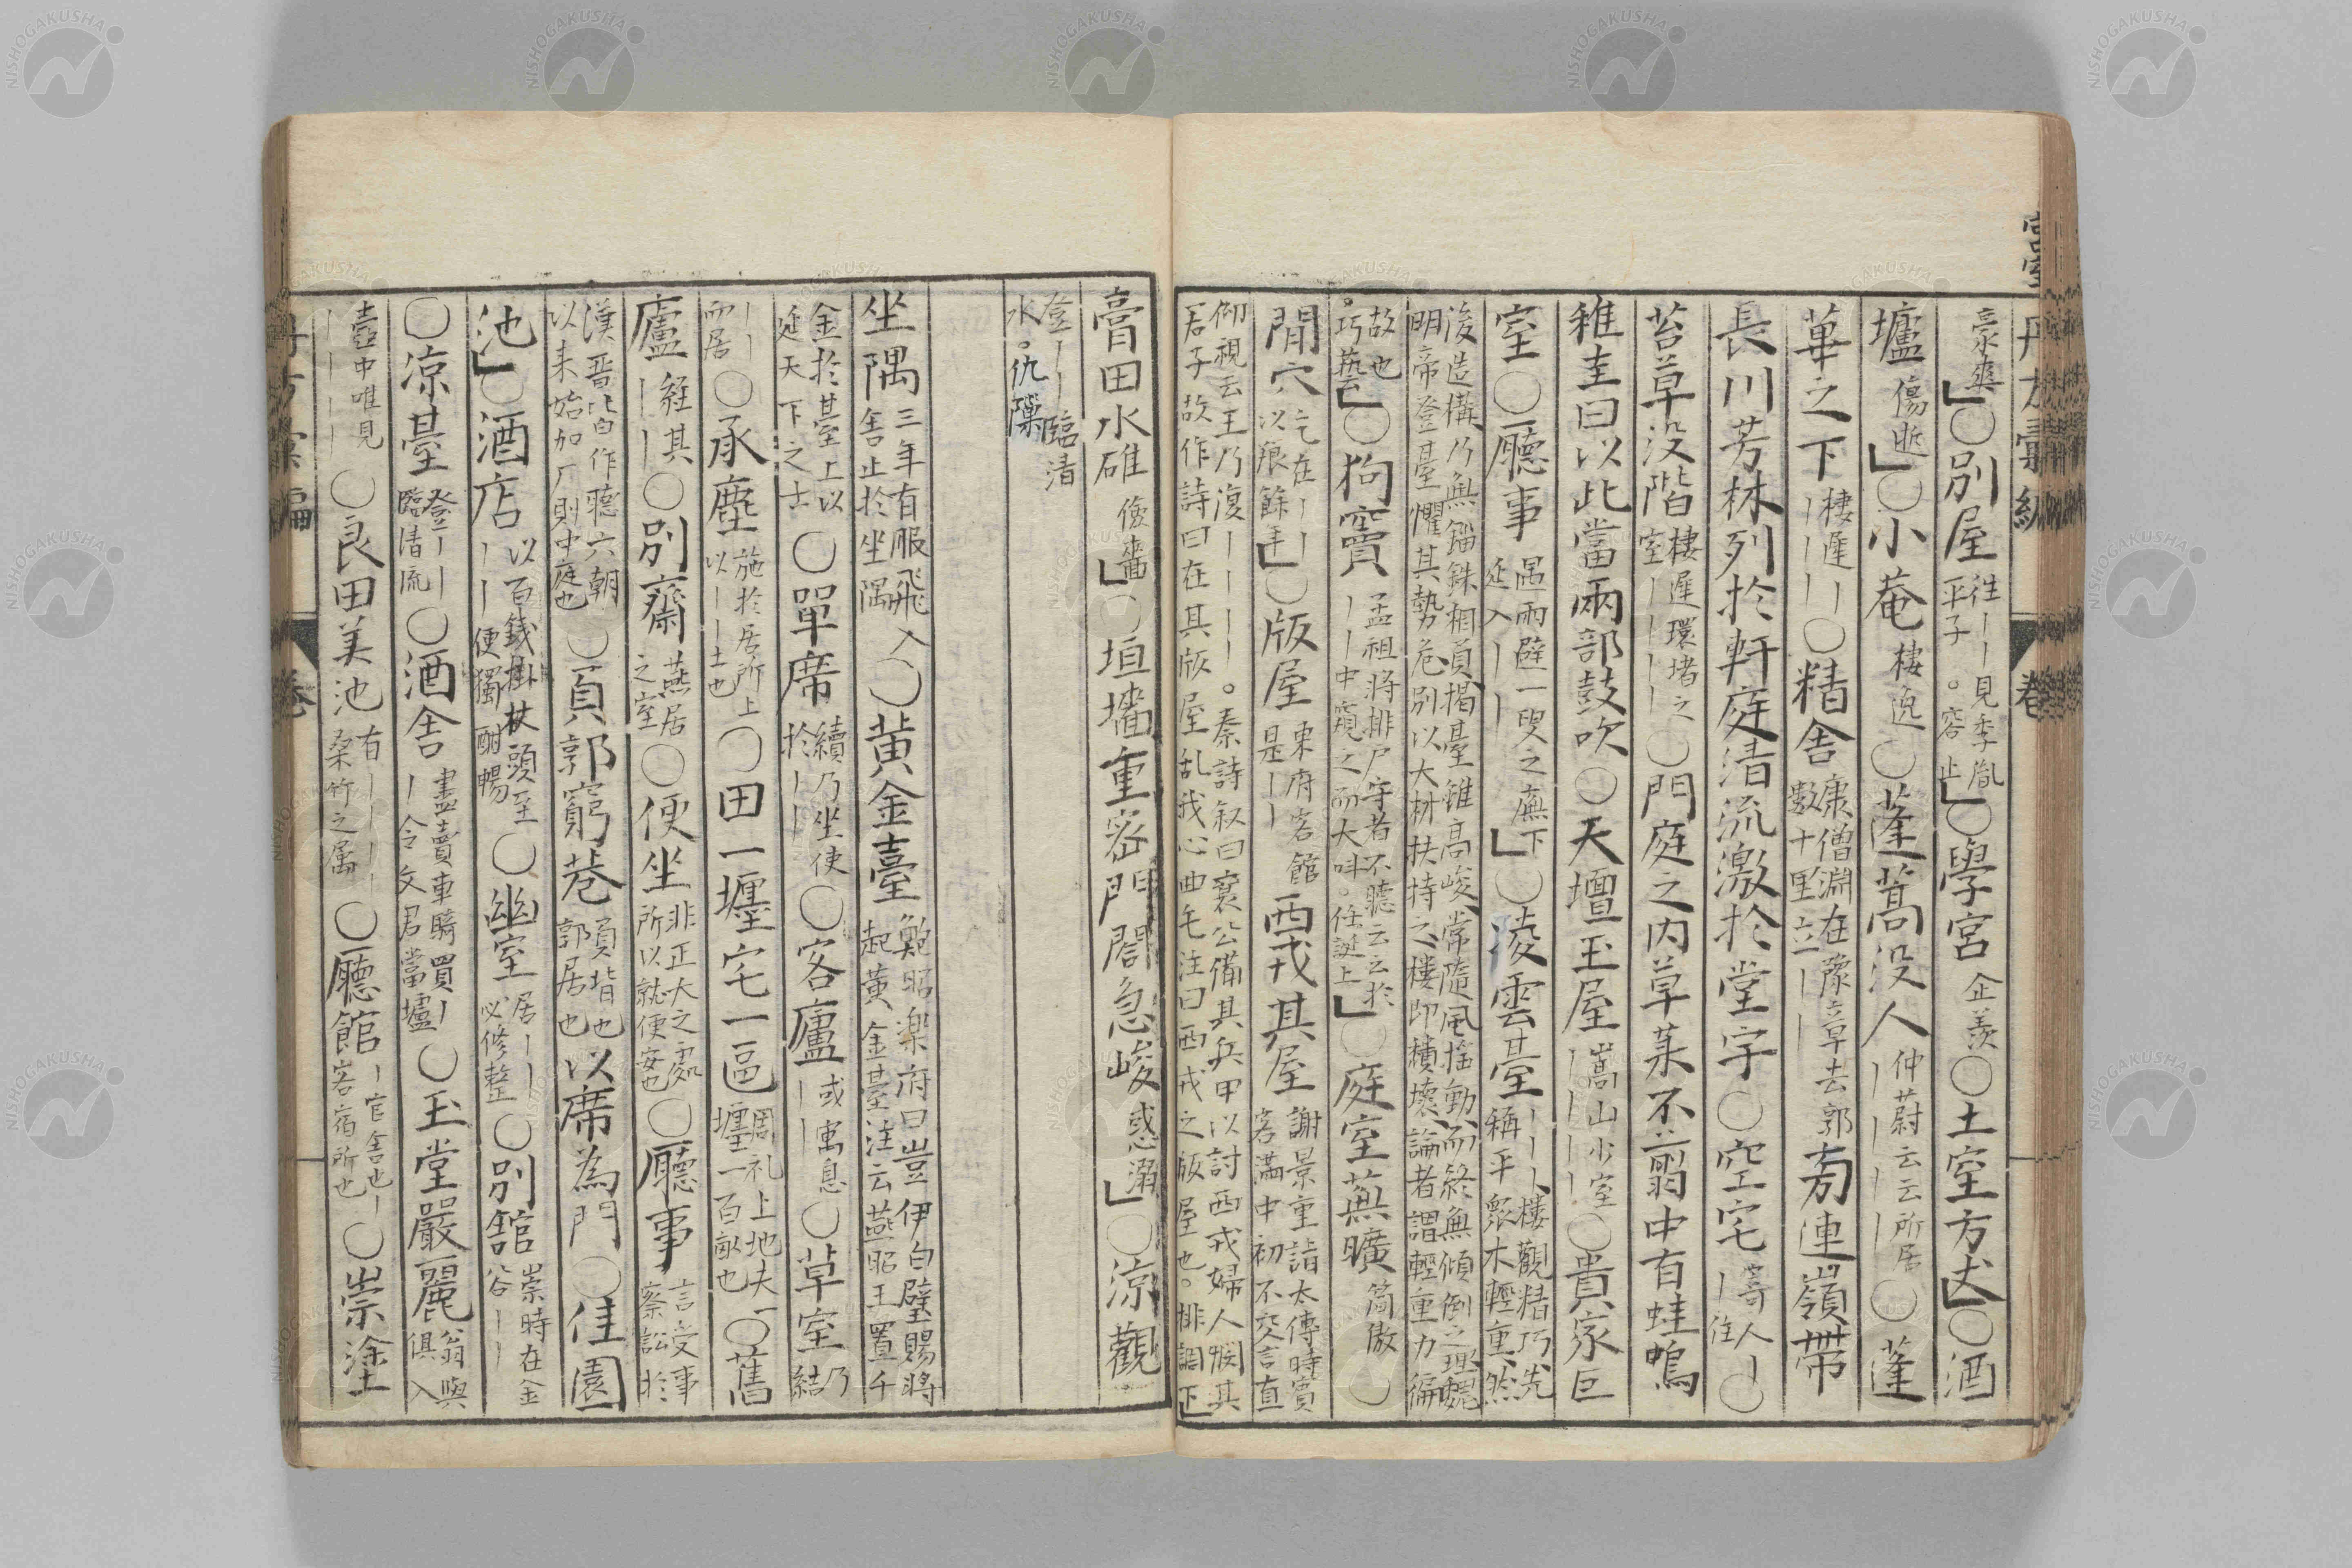 豪爽」〇別屋 往丨丨見季胤平子。容止」〇學宮 企羨〇土室方丈」〇酒
壚 傷逝」〇小菴 棲逸〇蓬蒿没人 仲蔚云云所居丨丨丨丨〇蓬
蓽之下 棲遲丨丨丨丨〇精舎 康僧淵在豫章去郭數十里立丨丨 旁連嶺帶
長川芳林列於軒庭清流激於堂宇〇空宅 丨寄人丨住〇
苔草没階 棲遲環堵之室丨丨丨丨〇門庭之内草莱不翦中有蛙鳴
稚圭曰以此當兩部鼓吹〇天壇玉屋 嵩山少室丨丨丨丨〇貴家巨
室〇廳事 遇雨避一叟之廡下延入丨丨」〇凌雲臺 丨丨丨樓觀精巧先稱平衆木輕重然
後造構乃無錙銖相負揭臺雖高峻常隨風揺動而終無傾倒之理魏
明帝登臺懼其勢危別以大材扶持之樓即穨壊論者謂輕重力偏
故也。巧藝」〇狗竇 孟祖將排戸守者不聽云云於丨丨中窺之而大叫。任誕上」〇庭室蕪曠 簡傲〇
閒穴 乞在丨丨以痕餘年」〇版屋 東府客館是丨丨 西戎其屋 謝景重詣太傅時賓客滿中初不交言直
仰視云王乃復丨丨丨丨。秦詩叙曰襄公備其兵甲以討西戎婦人閔其
君子故作詩曰在其版屋乱我心曲毛注曰西戎之版屋也。排調下」
膏田水碓 儉嗇」〇垣墻重密門閤急峻 惑溺」〇涼觀
登丨丨臨清水。仇隟
坐隅 三年有服飛入舎止於坐隅〇黄金臺 鮑昭楽府曰豈伊白璧賜將起黄金臺注云燕昭王置千
金於臺上以延天下之士〇單席 續乃坐使於丨丨〇客廬 或寓息丨丨〇草室 乃結
丨丨而居〇承塵 施於居所上以丨丨土也〇田一㕓宅一區 周礼上地夫一㕓一百畝也〇舊
廬 經其丨丨〇別齋 燕居之室〇便坐 非正大之處所以就便安也〇廳事 言受事察訟於
漢晋皆作聽六朝以来始加厂則中庭也〇負郭窮巷 負背也郭居也 以席為門〇佳園
池」〇酒店 以百錢掛杖頭至丨丨便獨酣暢〇幽室 居丨丨必修整〇別舘 崇時在金谷丨丨
〇凉臺 登丨丨臨清流〇酒舎 盡賣車騎買丨丨令文君當壚〇玉堂嚴麗 翁與俱入
壺中唯見丨丨丨丨〇良田美池 有丨丨丨丨桑竹之属〇廳館 丨官舎也丨客宿所也〇崇塗